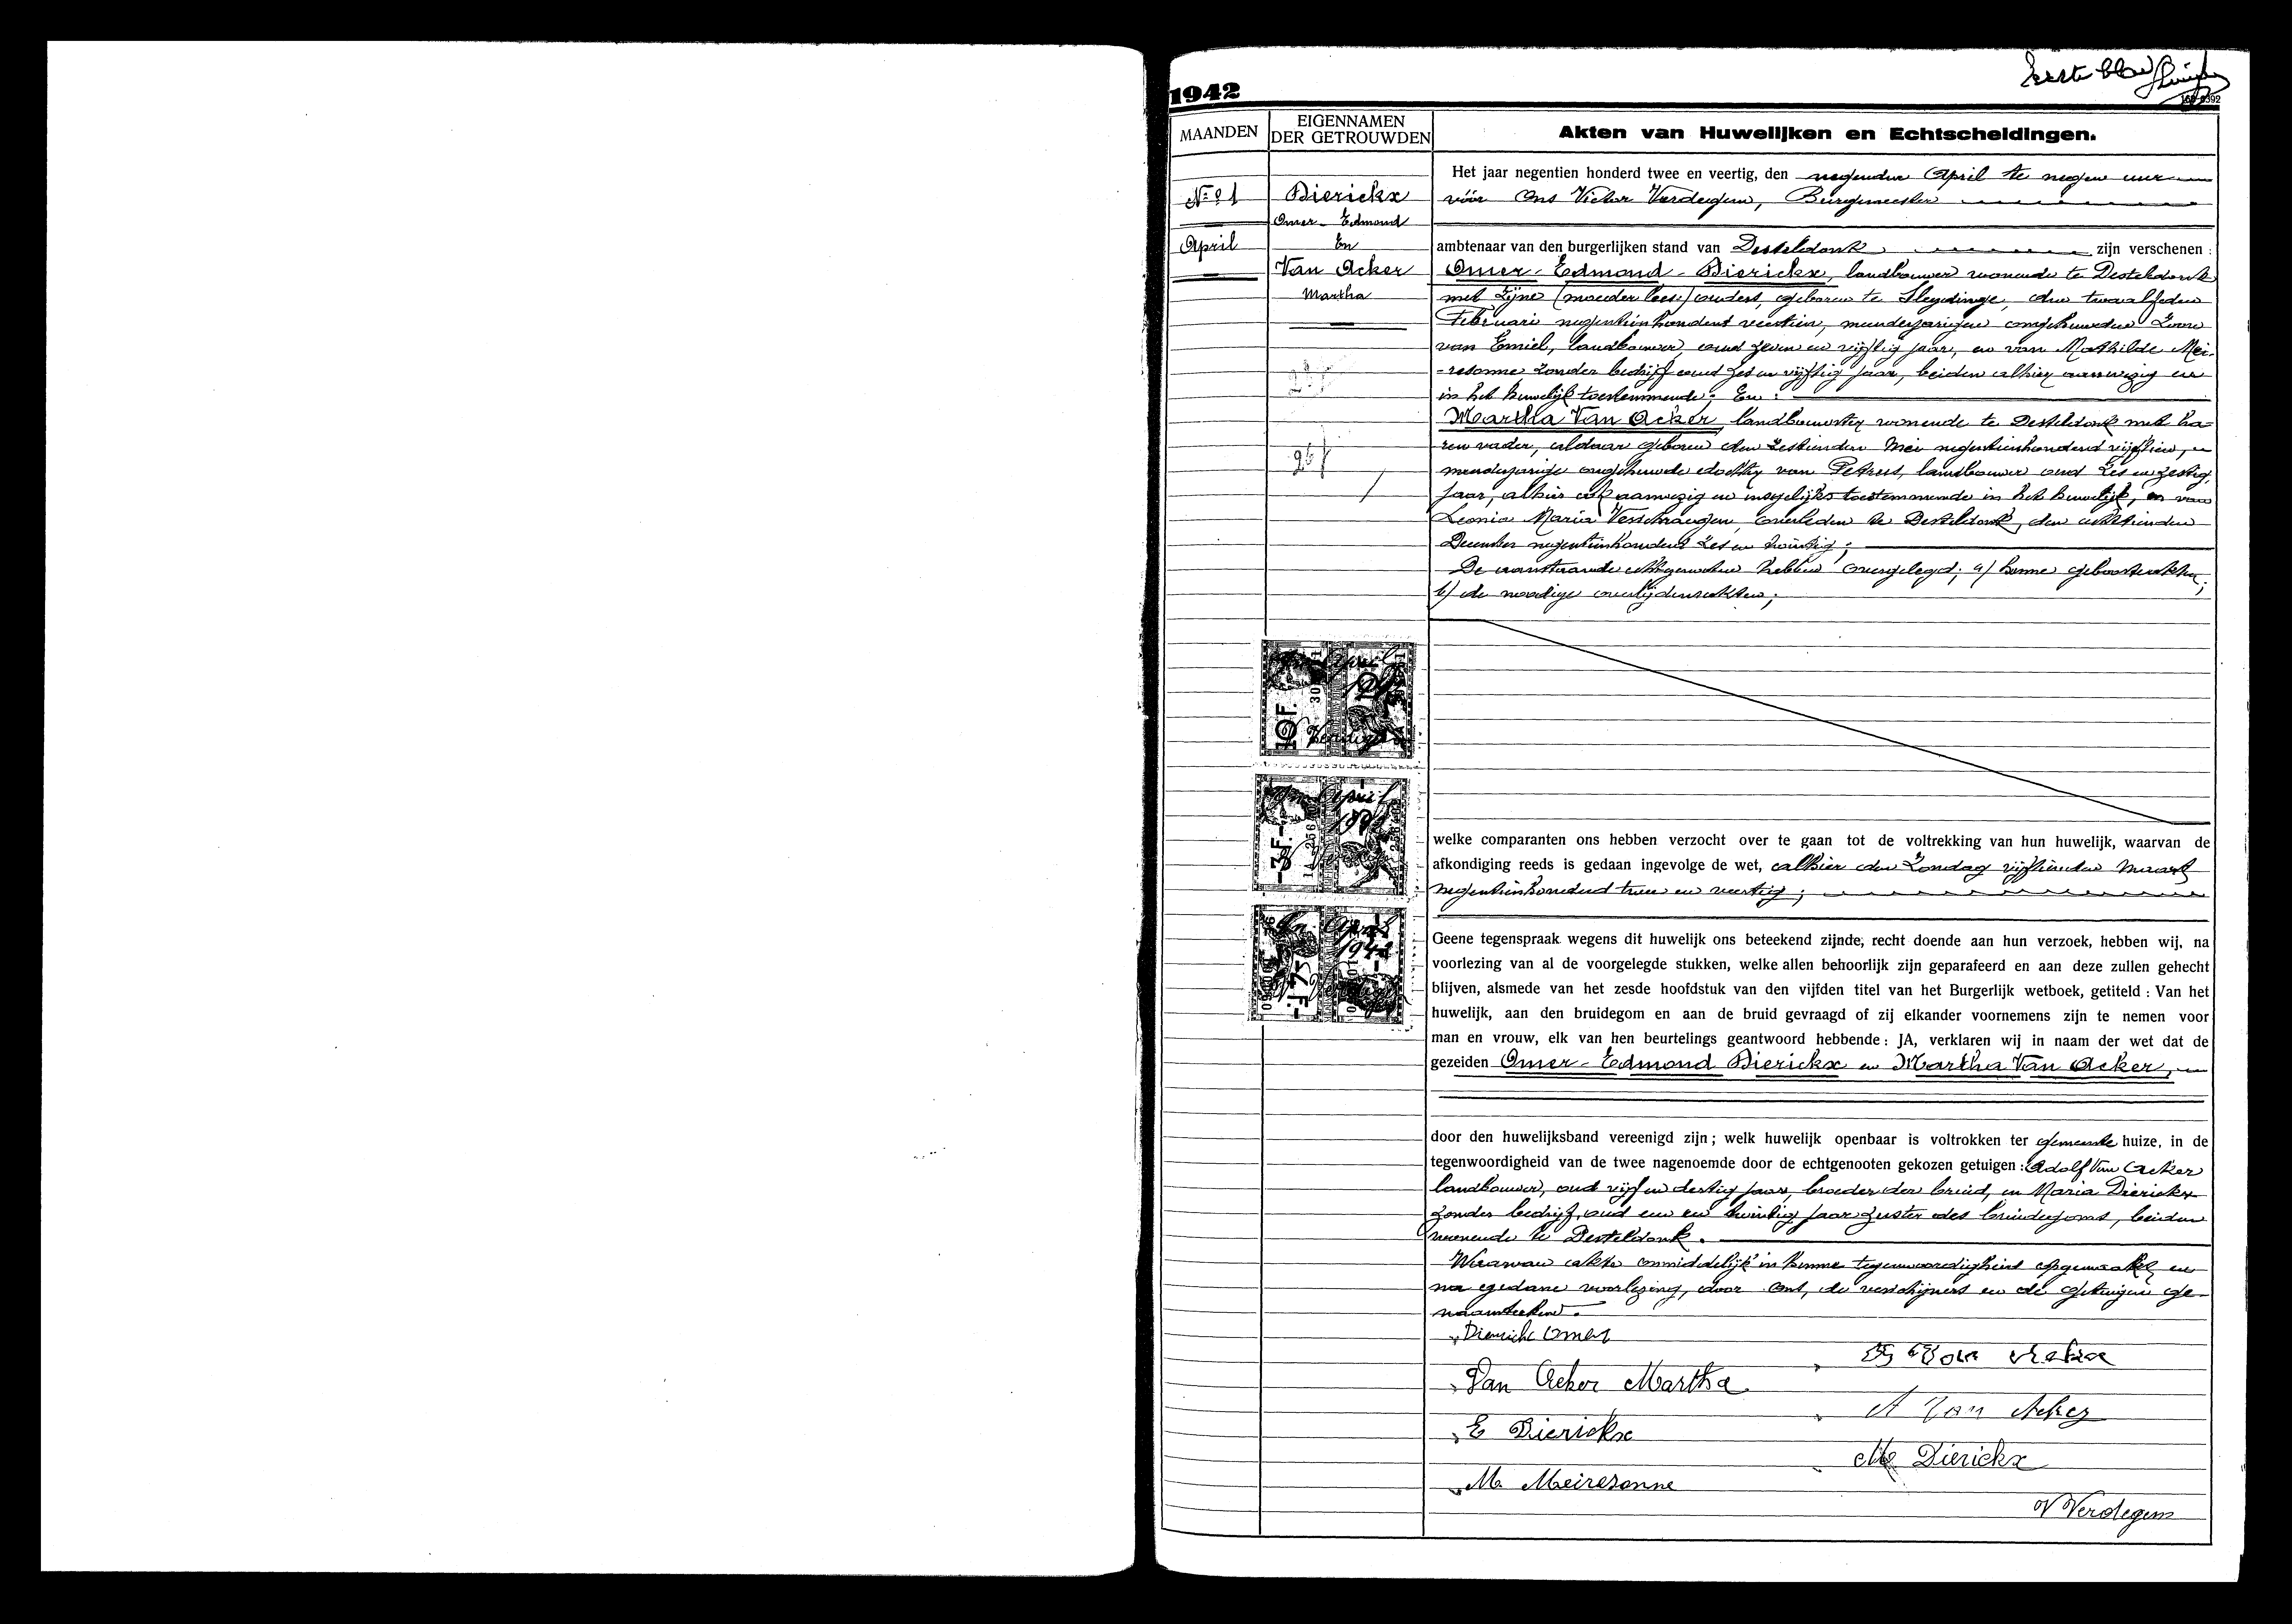 Eerste blad
1942
MAANDEN
EIGENNAMEN DER GETROUWDEN
Akten van Huwelijken en Echtscheidingen.
N° 1
April
Dierickx
Omer - Edmond
En
Van Acker
Martha
Het jaar negentien honderd twee en veertig, den negenden April te negen uur
vóór Ons Victor Verdegem, Burgemeester
ambtenaar van den burgerlijken stand van Desteldonk zijn verschenen :
Omer - Edmond - Dierickx, landbouwer wonende te Desteldonk
met zijne ouders, geboren te Sleydinge, den twaalfden
Februari negentienhonderd veertien, meerderjarigen ongehuwden Zoon
van Emiel, landbouwer, oud zeven en vijftig jaar, en van Mathilde Mei-
-resonne zonder bedrijf oud zes en vijftig jaar, beiden alhier aanwezig en
in het huwelijk toestemmende; En :
Martha Van Acker, landbouwster wonende te Desteldonk met ha-
ren vader, aldaar geboren den zestienden Mei negentienhonderd vijftien,
meerderjarige ongehuwde dochter van Petrus, landbouwer oud zes en zestig
jaar, alhier ook aanwezig en insgelijks toestemmende in het huwelijk, en van
Leonia Maria Verschraegen, overleden te Desteldonk, den achttienden
December negentienhonderd zes en twintig;
De aanstaande echtgenoten hebben overgelegd; a/ hunne geboorteakten;
b/ de noodige overlijdensakten;
10F.
April
Verdegem
-3F.-
April
1942
April
1942
welke comparanten ons hebben verzocht over te gaan tot de voltrekking van hun huwelijk, waarvan de
afkondiging reeds is gedaan ingevolge de wet, alhier den Zondag vijftienden Maart
negentienhonderd twee en veertig;
Geene tegenspraak wegens dit huwelijk ons beteekend zijnde, recht doende aan hun verzoek, hebben wij, na
voorlezing van al de voorgelegde stukken, welke allen behoorlijk zijn geparafeerd en aan deze zullen gehecht
blijven, alsmede van het zesde hoofdstuk van den vijfden titel van het Burgerlijk wetboek, getiteld : Van het
huwelijk, aan den bruidegom en aan de bruid gevraagd of zij elkander voornemens zijn te nemen voor
man en vrouw, elk van hen beurtelings geantwoord hebbende : JA, verklaren wij in naam der wet dat de
gezeiden Omer - Edmond Dierickx en Martha Van Acker,
door den huwelijksband vereenigd zijn ; welk huwelijk openbaar is voltrokken ter gemeente huize, in de
tegenwoordigheid van de twee nagenoemde door de echtgenooten gekozen getuigen : Adolf Van Acker
landbouwer, oud vijf en dertig jaar, broeder der bruid, en Maria Dierickx
zonder bedrijf, oud een en twintig jaar zuster des bruidegoms, beiden
wonende te Desteldonk.
Waarvan akte onmiddelijk in hunne tegenwoordigheid opgemaakt en
na gedane voorlezing, door Ons, de verschijners en de getuigen ge-
naamteekend.
Dierickx Omer
Van Acker
Van Acker Martha
A Van Acker
E Dierickx
M Dierickx
M. Meiresonne
V Verdegem